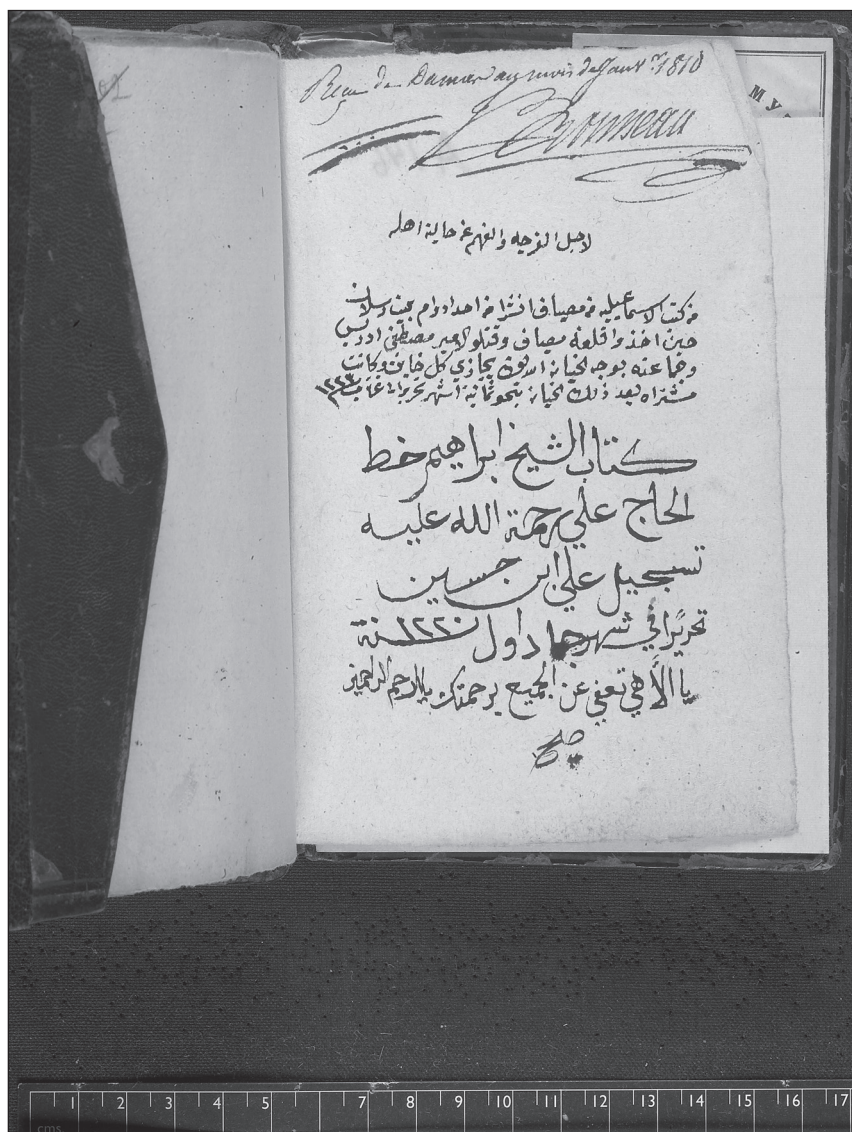 Reçu de Damas au mois de Janvr. 1810
Rousseau
لاجل الفرجه والفهم عن حالة اهله
من كتب الاسماعيليه من مصياف انشرا من احد اوام بيت رسلان
حين اخذوا قلعة مصياف وقتلو الامير مصطفى ادريس
وجماعته بوجه الخيانه الله يجازي كل خاين وكانت
مشتراه بعد ذلك الخيانه بنحو ثمانية اشهر تحريرا في ١٢٢٣
كتاب الشيخ ابراهيم خط
الحاج علي رحمة الله عليه
تسجيل علي ابن حسين
تحريرًا في شهر جماد اول سنة ١٢٢٠
يا الاهي تعفي عن الجميع برحمتك يا ارحم الراحمين
МУ
1 2 3 4 5 7 8 9 10 11 12 13 14 15 16 17
cms